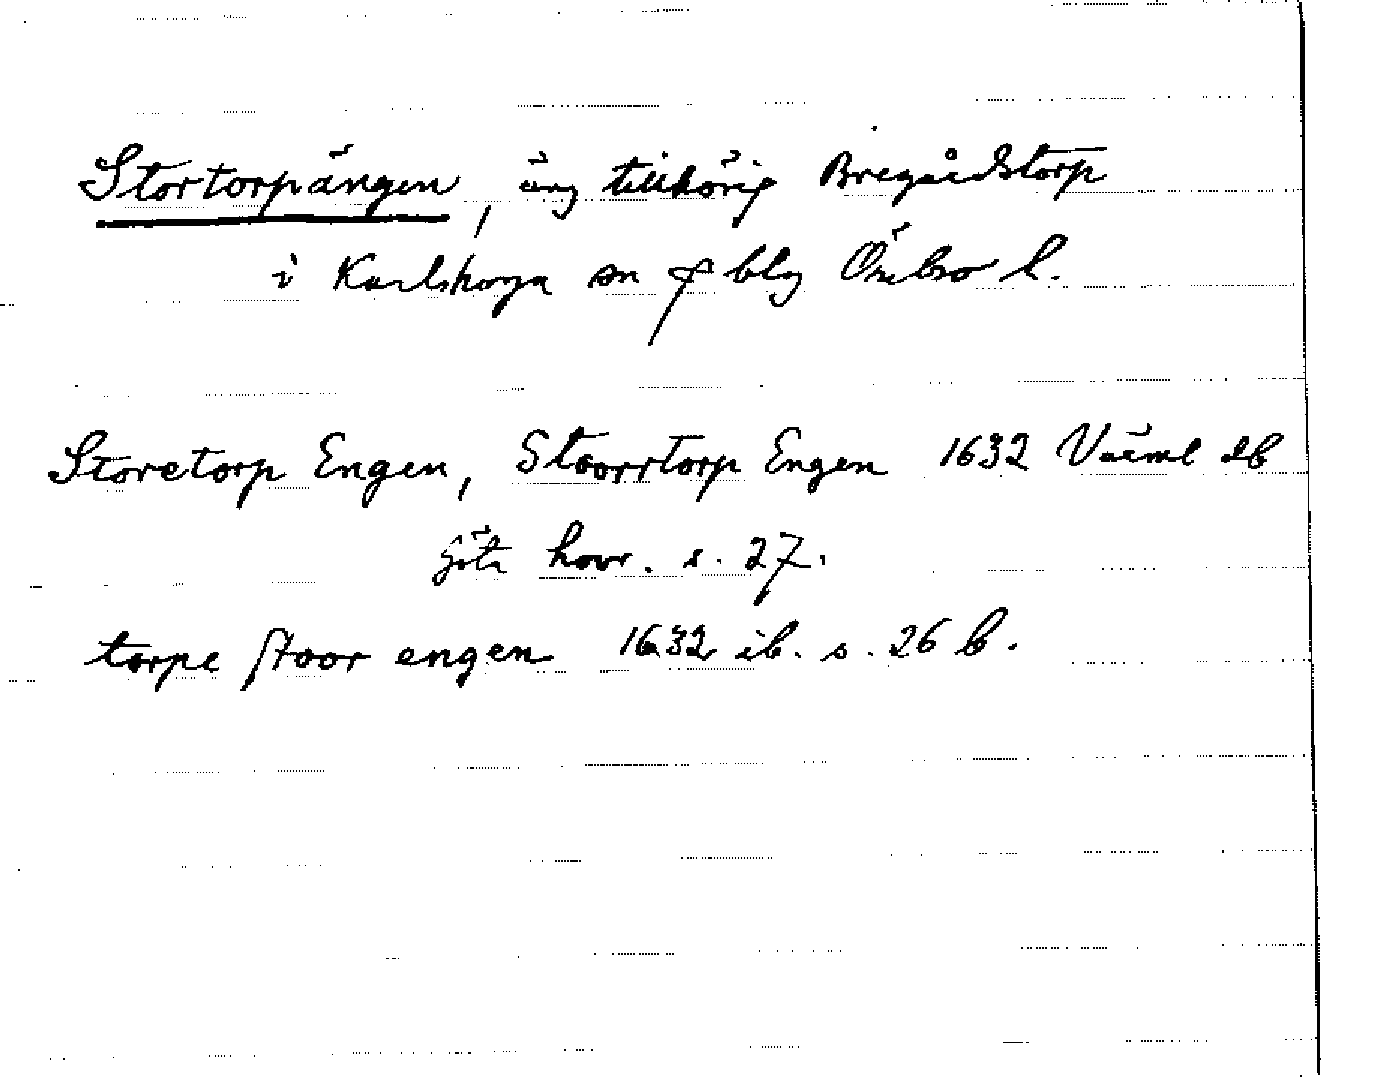 Stortorpängen, äng tillhörig Bregårdstorp
i Karlskoga sn o blg Örebro l.
Storetorp Engen, Stoorrtorp Engen 1632 Värml db
Göta hovr. s. 27.
torpe stoor engen 1632 ib. s. 26 b.